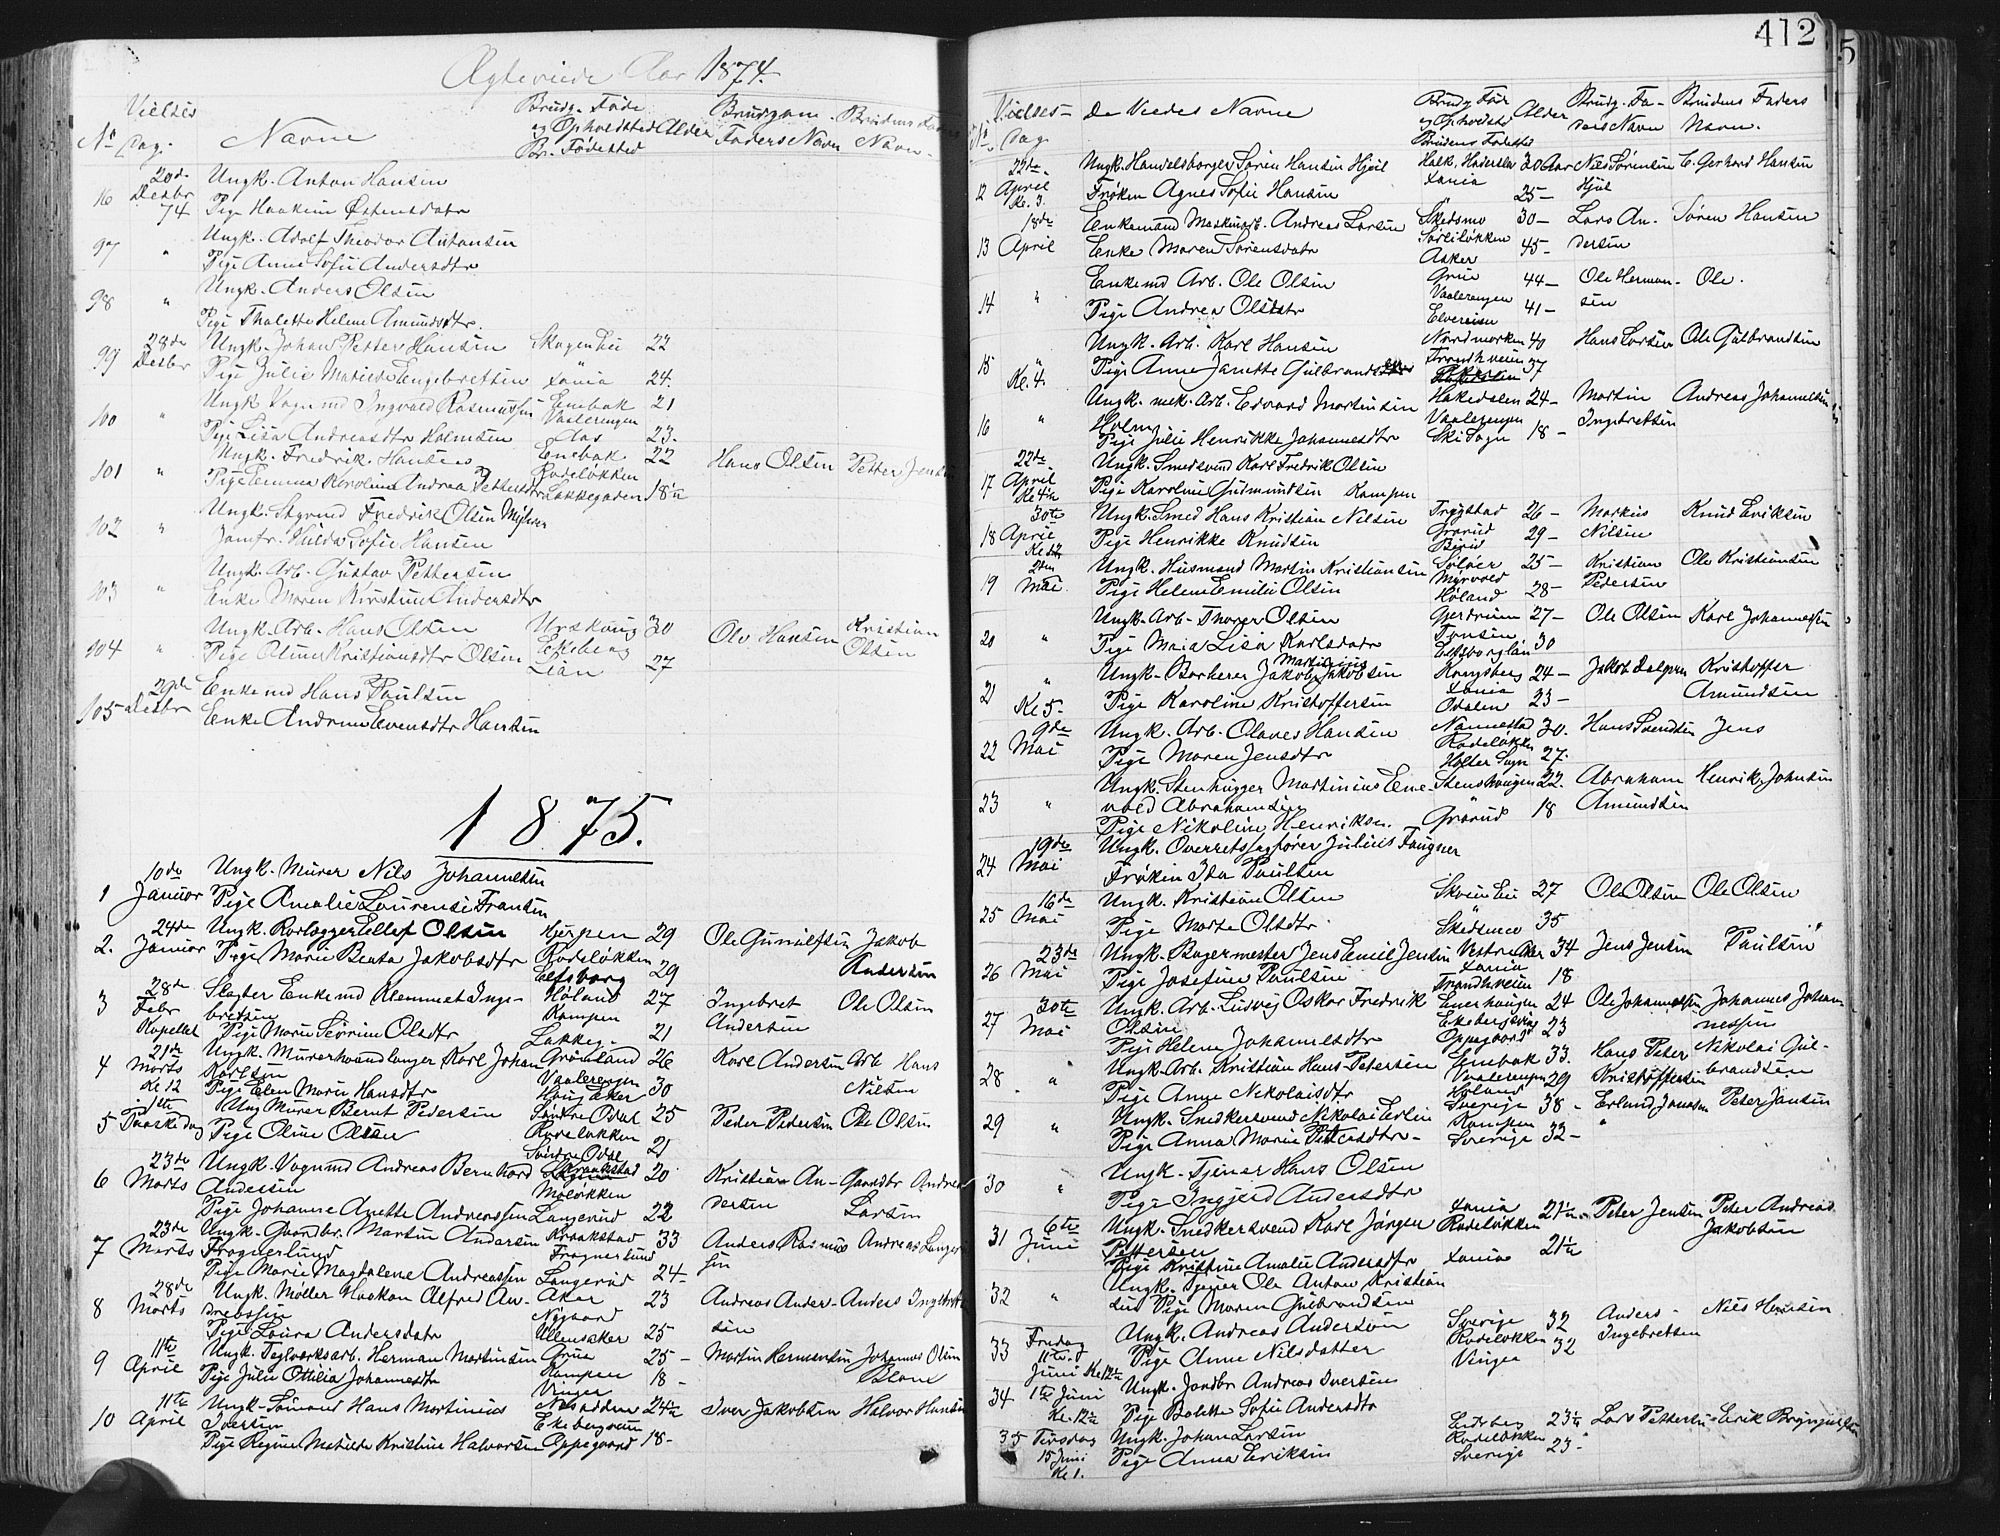 Ægteviede Aar 1874.
Vielses Dag. Navne Brudg. Føde og Opholdsted Br. Fødested Alder Brudgom. Faders Navn Brudens Faders Navn.
20de Decbr 74 Ungk. Anton Hansen
96 Pige Haakine Østensdatr
Ungk. Adolf Theodor Antonsen
97 " Pige Anne Sofie Andersdtr
Ungk. Anders Olsen
98 " Pige Thalette Helene Amundsdtr.
28de Ungk. Johan Petter Hansen 22
99 Decbr Pige Julie Mathilde Engebretsen Xania 24.
Ungk Vognmd Ingvald Rasmussen Enebak 21
100 " Vaalerengen
Pige Lisa Andreasdtr Holmsen Aas 23.
Ungk. Fredrik Hansen Enebak 22 Hans Olsen Petter
101 " Rodeløkken
Pige Emma Karoline Andrea Pettersdtr Lakkegaden 18½
Ungk. Styrmd Fredrik Olsen
102 " Jomfr. Hulda Sofie Hansen
Ungk. Arb. Gustav Pettersen
103 " Enke Maren Kirstine Andersdtr
Ungk. Arb. Hans Olsen Urskoug 30 Ole Hansen Kristian Olsen
104 " Pige Oline Kristiansdtr Olsen Ekeberg Lian 27
29de Enkemd Hans Paulsen
105 Decbr Enke Andrine Evensdtr Hansen
1875.
10de Ungk. Murer Nils Johannesen
1 Januar Pige Amalie Laurense Fransen
24de Ungk. Rorlægger Ellef Olsen 29 Ole Gunulfsen Jakob Andersen
2. Januar Pige Marie Beata Jakobsdtr Rodeløkken Elfsborg 29
28de Slagter Enkemd Klemmet Inge- Høland 27 Ingebret Andersen Ole Olsen
3 Febr bretsen Kampen
Kapellet Pige Maren Severine Olsdtr Lakkeg. 21
21de Ungk. Murerhaandlanger Karl Johan Grønland 26 Karl Andersen Arb Hans Nilsen
4 Marts Karlsen Vaalerengen
Kl 12 Pige Elen Marie Hansdtr Haugaker 30
1ste Ung Murer Bernt Pedersen Søndre Odal 25 Peder Pedersen Ole Olsen
5 Paaskedag Pige Oline Olsen Rodeløkken Søndre Odal 21
23de Ungk. Vognmd Andreas Bernhard Kraakstad 20 Kristian An- Gaardbr Andreas
6 Marts Andersen dersen Larsen
Pige Johanne Anette Andreassen Langerud 22
23de Ungk. Gaardbr. Martin Andersen Kraakstad 33 Anders Rasmus Andreas Langer
7 Marts Frognerlund Frognerlund sen
Pige Marie Magdalene Andreassen Langerud 24-
28de Ungk. Møller Haakon Alfred An- Aker 23 Andreas Ander- Anders
8 Marts dreassen Nygaard sen
Pige Laura Andersdatr Ullensaker 25
11te Ungk. Teglværksarb. Herman Martinsen Grue 25 - Martin Hermansen Johannes Olsen
9 April Kampen
Pige Julie Ottilia Johannesdtr Vinger 18 -
11te Ungk. Hans Martinius Nesodden 24½ Iver Jakobsen Halvor Hansen
10 April Iversen Ekebergveien
Pige Regine Mathilde Kristine Halvorsen Oppegaard 18-
412
5
Vielses- Dag. De Viedes Navne Brudg Føde og Opholdsted Brudens Fødested Alder Brudg. Fa- ders Navn Brudens Faders Navn.
22de Ungk. Handelsborger Søren Hansen Hjul 30 Aar Nils Sørensen Hjul C. Gerhard Hansen
12 April Xania
Kl. 3. Frøken Agnes Sofie Hansen 25-
18de Enkemand Maskinarb. Andreas Larsen Skedsmo 30- Lars An- Søren Hansen
13 April Sørliløkken dersen
Enke Maren Sørensdatr Asker 45-
Enkemd Arb. Ole Olsen Grue 44- Ole Herman- Ole.
14 " Vaalerengen sen
Pige Andrea Olsdatr 41-
Ungk. Arb. Karl Hansen Nordmarken 40 Hans Larsen Ole Gulbrandsen
15 " Trondhveien
Kl. 4. Pige Anne Janette Gulbrandsen 37
Ungk. mek. Arb. Edvard Martinsen Hakedalen 24- Martin Andreas Johannesen
16 " Holm Vaalerengen Ingebretsen
Pige Julie Henrikke Johannesdtr Ski Sogn 18-
22de Ungk. Smedsvend Karl Fredrik Olsen
17 April Kl 4½ Pige Karoline Gudmundsen Kampen
30te Ungk. Smed Hans Kristian Nilsen Trygstad 26- Markus Nilsen Knud Eriksen
18 April Grorud
Pige Henrikke Knudsen 29-
2den Ungk. Husmand Martin Kristiansen Solør 25- Kristian Pedersen Ole Kristiansen
19 Mai Myrvold
Pige Helene Emilie Olsen Høland 28-
Ungk. Arb. Thorer Olsen Gjerdrum 27- Ole Olsen Karl Johannesen
20 " Tonsen
Pige Maia Lisa Karlsdatr Elfsborglän 30
Ungk. Barberer Jakob Martinius Jakobsen Kongsberg 24- Jakob Kristoffer Amundsen
21 Kl 5. Xania
Pige Karoline Kristoffersen Odalen 23-
9de Ungk. Arb. Olaves Hansen Nannestad 30. Hans Svendsen Jens
22 Mai Rodeløkken
Pige Maren Jensdtr Holter Sogn 27.
Ungk. Stenhugger Martinius Ene- Stenshaugen 22. Abraham Amundsen Henrik Johnsen
23 " vold Abrahamsen
Pige Nikoline Henriksen. Grorud 18
19de Ungk. Overretssagfører Julius Faugner
24 Mai Frøken Ida Paulsen
16de Ungk. Kristian Olsen Skoien Eie 27 Ole Olsen Ole Olsen
25 Mai Pige Marte Olsdtr Skedsmo 35
23de Ungk. Bagermester Jens Emil Jensen Vestre Aker 34 Jens Jensen Paulsen
26 Mai Xania
Pige Josefine Paulsen Trondhveien 18
30te Ungk. Arb. Ludvig Oskar Fredrik Enerhaugen 24 Ole Johannesen Johannes Johan-
27 Mai Olsen Ekebergsvei nessen
Pige Helene Johannesdtr Oppegaard 23
Ungk. Arb. Kristian Hans Petersen Enebak 33. Hans Peter Kristoffersen Nikolai Gul- brandsen
28 " Vaalerengen
Pige Anne Nikolaisdtr Høland 29
Ungk. Snedkersvend Nikolai Erlin Sverige 38- Erlund Jonasson Peter Jansen
29 " Kampen
Pige Anna Marie Petersdtr- Sverige 32-
Ungk. Tjener Hans Olsen
30 " Pige Ingjerd Andersdtr
6te Ungk. Snedkersvend Karl Jørgen Xania 21½ Peter Jensen Peter Andreas Jakobsen
31 Juni Pettersen Rodeløkken
Pige Kristine Amalie Andersdtr Xania 21½
Ungk. Tjener Ole Anton Kristian
32 " sen Pige Maren Gulbrandsen
Fredag Ungk. Andreas Anderson Sverige 32 Anders Ingebretsen Nils Hansen
33 11te Juni Kl 12½ Rodeløkken
Pige Anne Nilsdatter Vinger 32
34 Juni Ungk. Jordbr Andreas Iversen
Kl. 12½ Pige Bolette Sofie Andersdtr
35 Tirsdag Ungk. Johan Larsen Eidsberg 23½ Lars Pettersen Erik
15 Juni Rodeløkken
Kl 1. Pige Anna Eriksen Sverige 23-